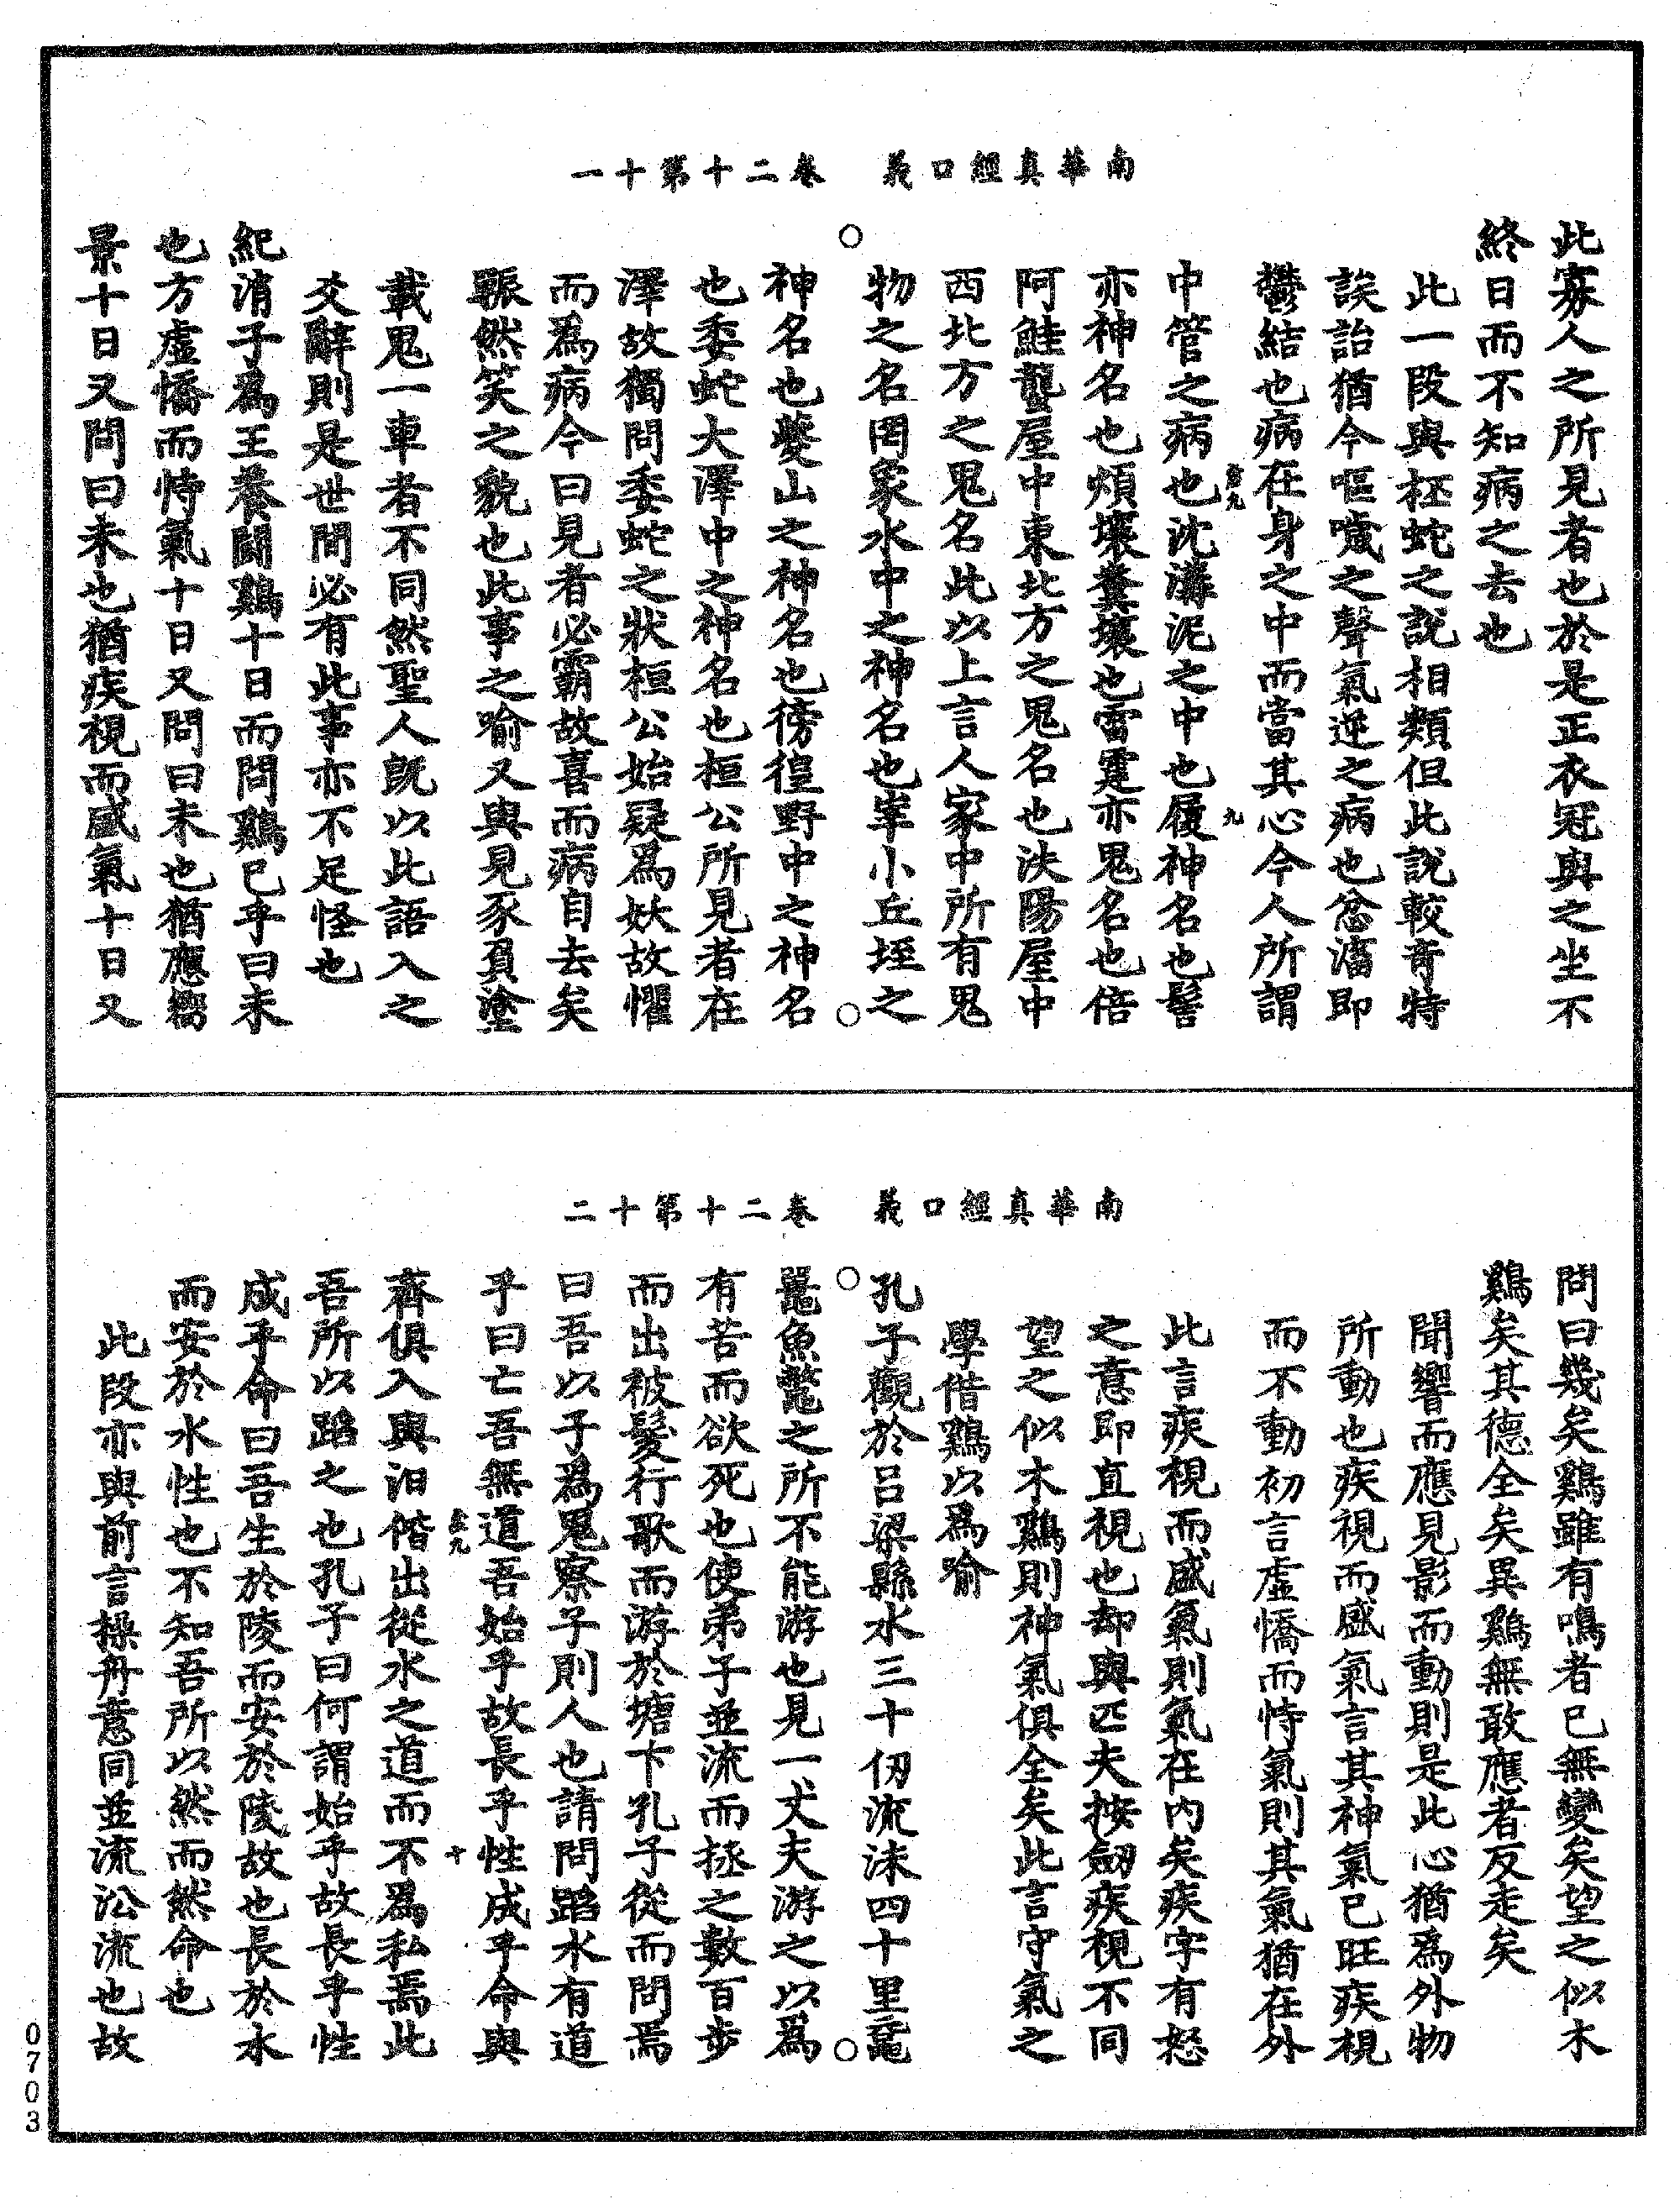 南華真經口義　卷二十第十一
此寡人之所見者也於是正衣冠與之坐不
終日而不知病之去也
此一段與柸蛇之說相類但此說較奇特
誒詒猶今嘔噦之聲氣逆之病也忿滀即
鬱結也病在身之中而當其心今人所謂
中管之病也沈溝泥之中也履神名也髻
亦神名也煩壤糞壤也雷霆亦鬼名也倍
阿鮭蠪屋中東北方之鬼名也泆陽屋中
西北方之鬼名此以上言人家中所有鬼
物之名罔象水中之神名也峷小丘垤之
神名也夔山之神名也徬徨野中之神名
也委蛇大澤中之神名也桓公所見者在
澤故獨問委蛇之狀桓公始疑為妖故懼
而為病今曰見者必霸故喜而病自去矣
辴然笑之貌也此事之喻又與見豕負塗
載鬼一車者不同然聖人既以此語入之
爻辭則是世間必有此事亦不足怪也
紀渻子為王養鬭鷄十日而問鷄已乎曰未
也方虛憍而恃氣十日又問曰未也猶應嚮
景十日又問曰未也猶疾視而盛氣十日又
南華真經口義　卷二十第十二
問曰幾矣鷄雖有鳴者已無變矣望之似木
鷄矣其德全矣異鷄無敢應者反走矣
聞響而應見影而動則是此心猶為外物
所動也疾視而盛氣言其神氣已旺疾視
而不動初言虛憍而恃氣則其氣猶在外
此言疾視而盛氣則氣在內矣疾字有怒
之意即直視也却與匹夫按劒疾視不同
望之似木鷄則神氣俱全矣此言守氣之
學借鷄以為喻
孔子觀於呂梁縣水三十仞流沫四十里黿
鼉魚鼈之所不能游也見一丈夫游之以為
有苦而欲死也使弟子並流而拯之數百步
而出被髮行歌而游於塘下孔子從而問焉
曰吾以子為鬼察子則人也請問蹈水有道
乎曰亡吾無道吾始乎故長乎性成乎命與
齊俱入與汩偕出從水之道而不為私焉此
吾所以蹈之也孔子曰何謂始乎故長乎性
成乎命曰吾生於陵而安於陵故也長於水
而安於水性也不知吾所以然而然命也
此段亦與前言操舟意同並流沿流也故
0703